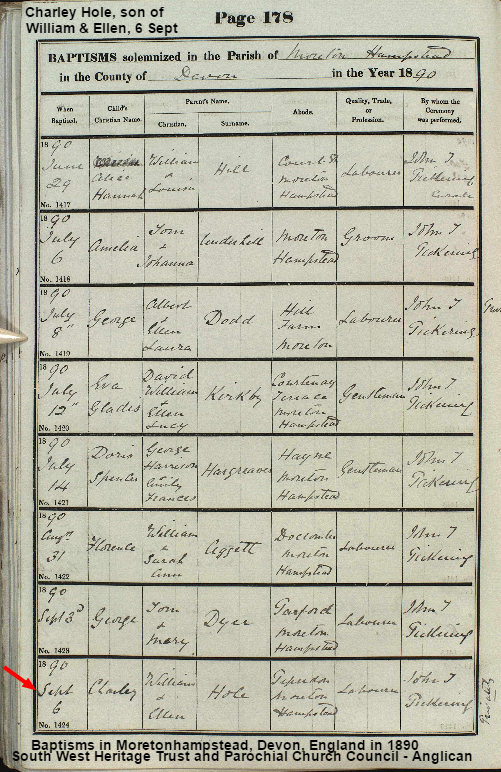 Charley Hole, son of
William & Ellen, 6 Sept
Page 178
BAPTISMS solemnized in the Parish of Moreton Hampstead
in the County of Devon in the Year 1890
When Baptized.
Child's Christian Name.
Parent's Name.
Christian.
Surname.
Abode.
Quality, Trade, or Profession.
By whom the Ceremony was performed.
1890 June 29 No. 1417
Alias Hannah
William & Louisa
Hill
Court St Moreton Hampstead
Labourer
John T Pickering Curate
1890 July 6 No. 1418
Amelia
Tom & Johanna
Underhill
Moreton Hampstead
Groom
John T Pickering
1890 July 8" No. 1419
George
Albert & Ellen Laura
Dodd
Hill Farm Moreton
Labourer
John T Pickering
1890 July 12" No. 1420
Eva Gladis
David William & Ellen Lucy
Kirkby
Courtenay Terrace Moreton Hampstead
Gentleman
John T Pickering
1890 July 14 No. 1421
Doris Spencer
George Harrison & Emily Frances
Hargreaves
Hayne Moreton Hampstead
Gentleman
John T Pickering
1890 Augst 31 No. 1422
Florence
William & Sarah Ann
Aggett
Doccombe Moreton Hampstead
Labourer
John T Pickering
1890 Sept 3d No. 1423
George
Tom & Mary
Dyer
Moreton Hampstead
Labourer
John T Pickering
1890 Sept 6 No. 1424
Charley
William & Ellen
Hole
Moreton Hampstead
Labourer
John T Pickering
Privately
Baptisms in Moretonhampstead, Devon, England in 1890
South West Heritage Trust and Parochial Church Council - Anglican